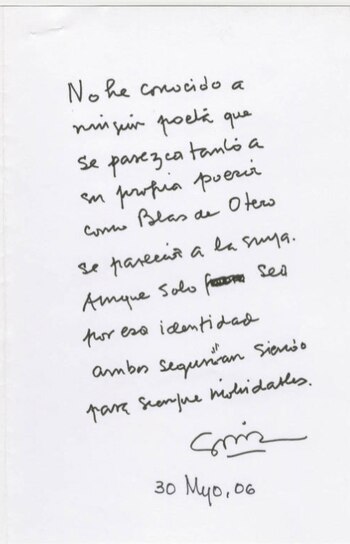 No he conocido a
ningún poeta que
se parezca tanto a
su propia poesía
como Blas de Otero
se parecía a la suya.
Aunque solo sea
por esa identidad
ambos seguirían siendo
para siempre inolvidables.
30 Myo, 06